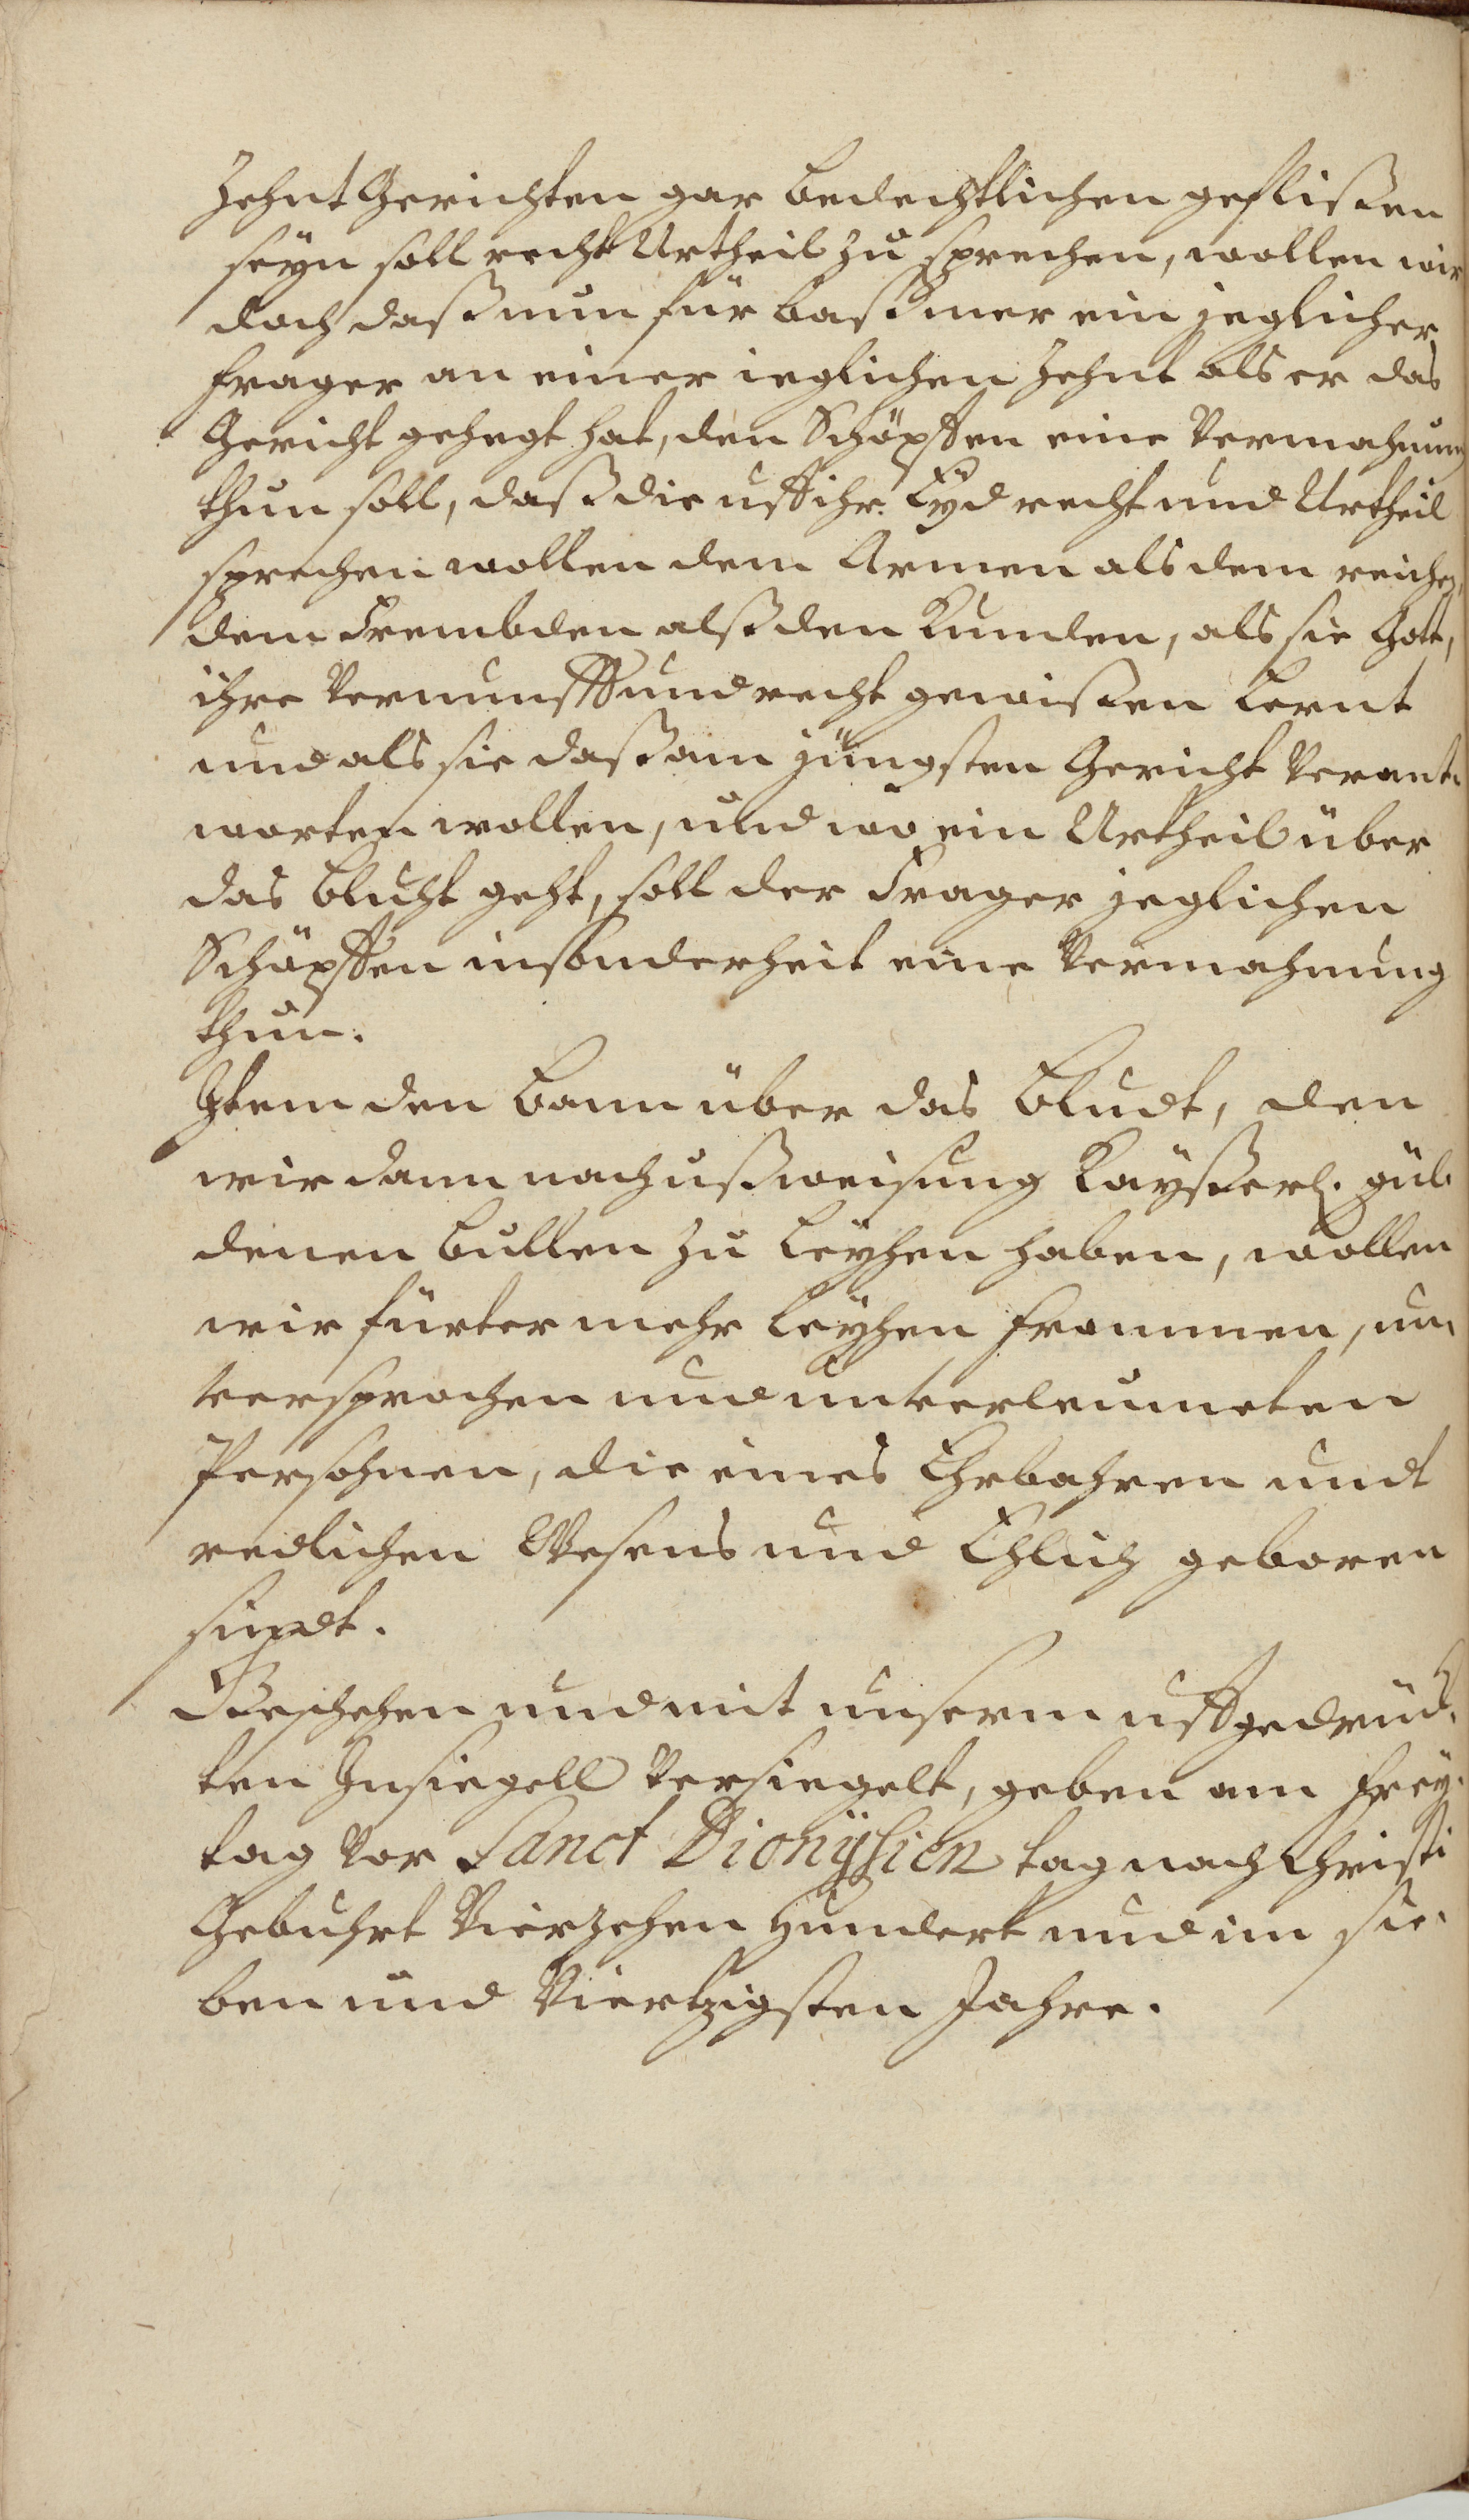 Zehnt Gerichten gar bedechtlichen geflißen
seyn soll recht Urtheil zu sprechen, wollen wir
doch daß nun für baß mer ein jeglicher
frager an einer ieglichen Zehnt als er das
Gericht gehegt hat, den Schöpffen eine Vermahnung
thun soll, daß die uff ihr Eyd recht und Urtheil
sprechen wollen dem Armen als dem reichen,
dem Frembden alß den Kunden, als sie Gott,
ihre Vernunfft und recht gewißen Lernt
und als sie daß am jüngsten Gericht Verant-
worten wollen, und wo ein Urtheil über
das Bluht geht, soll der Frager jeglichen
Schöpffen insonderheit eine Vermahnung
thun.
Item den Bann über das Bludt, den
wir dann nach ußweisung Kayßerl. gül-
denen Bullen zu Leyhen haben, wollen
wir fürter mehr Leyhen frommen, un-
versprochen und unverleumeten
Persohnen, die eines Ehrbahren undt
redlichen Wesens und Ehlich geboren
sindt.
Geschehen und mit unserm uffgedruck-
ten Insiegell Versiegelt, geben am Frey-
tag vor Sanct Dionÿsien tag nach Christi
Gebuhrt Vierzehen Hundert und im sie-
ben und Viertzigsten Jahre.